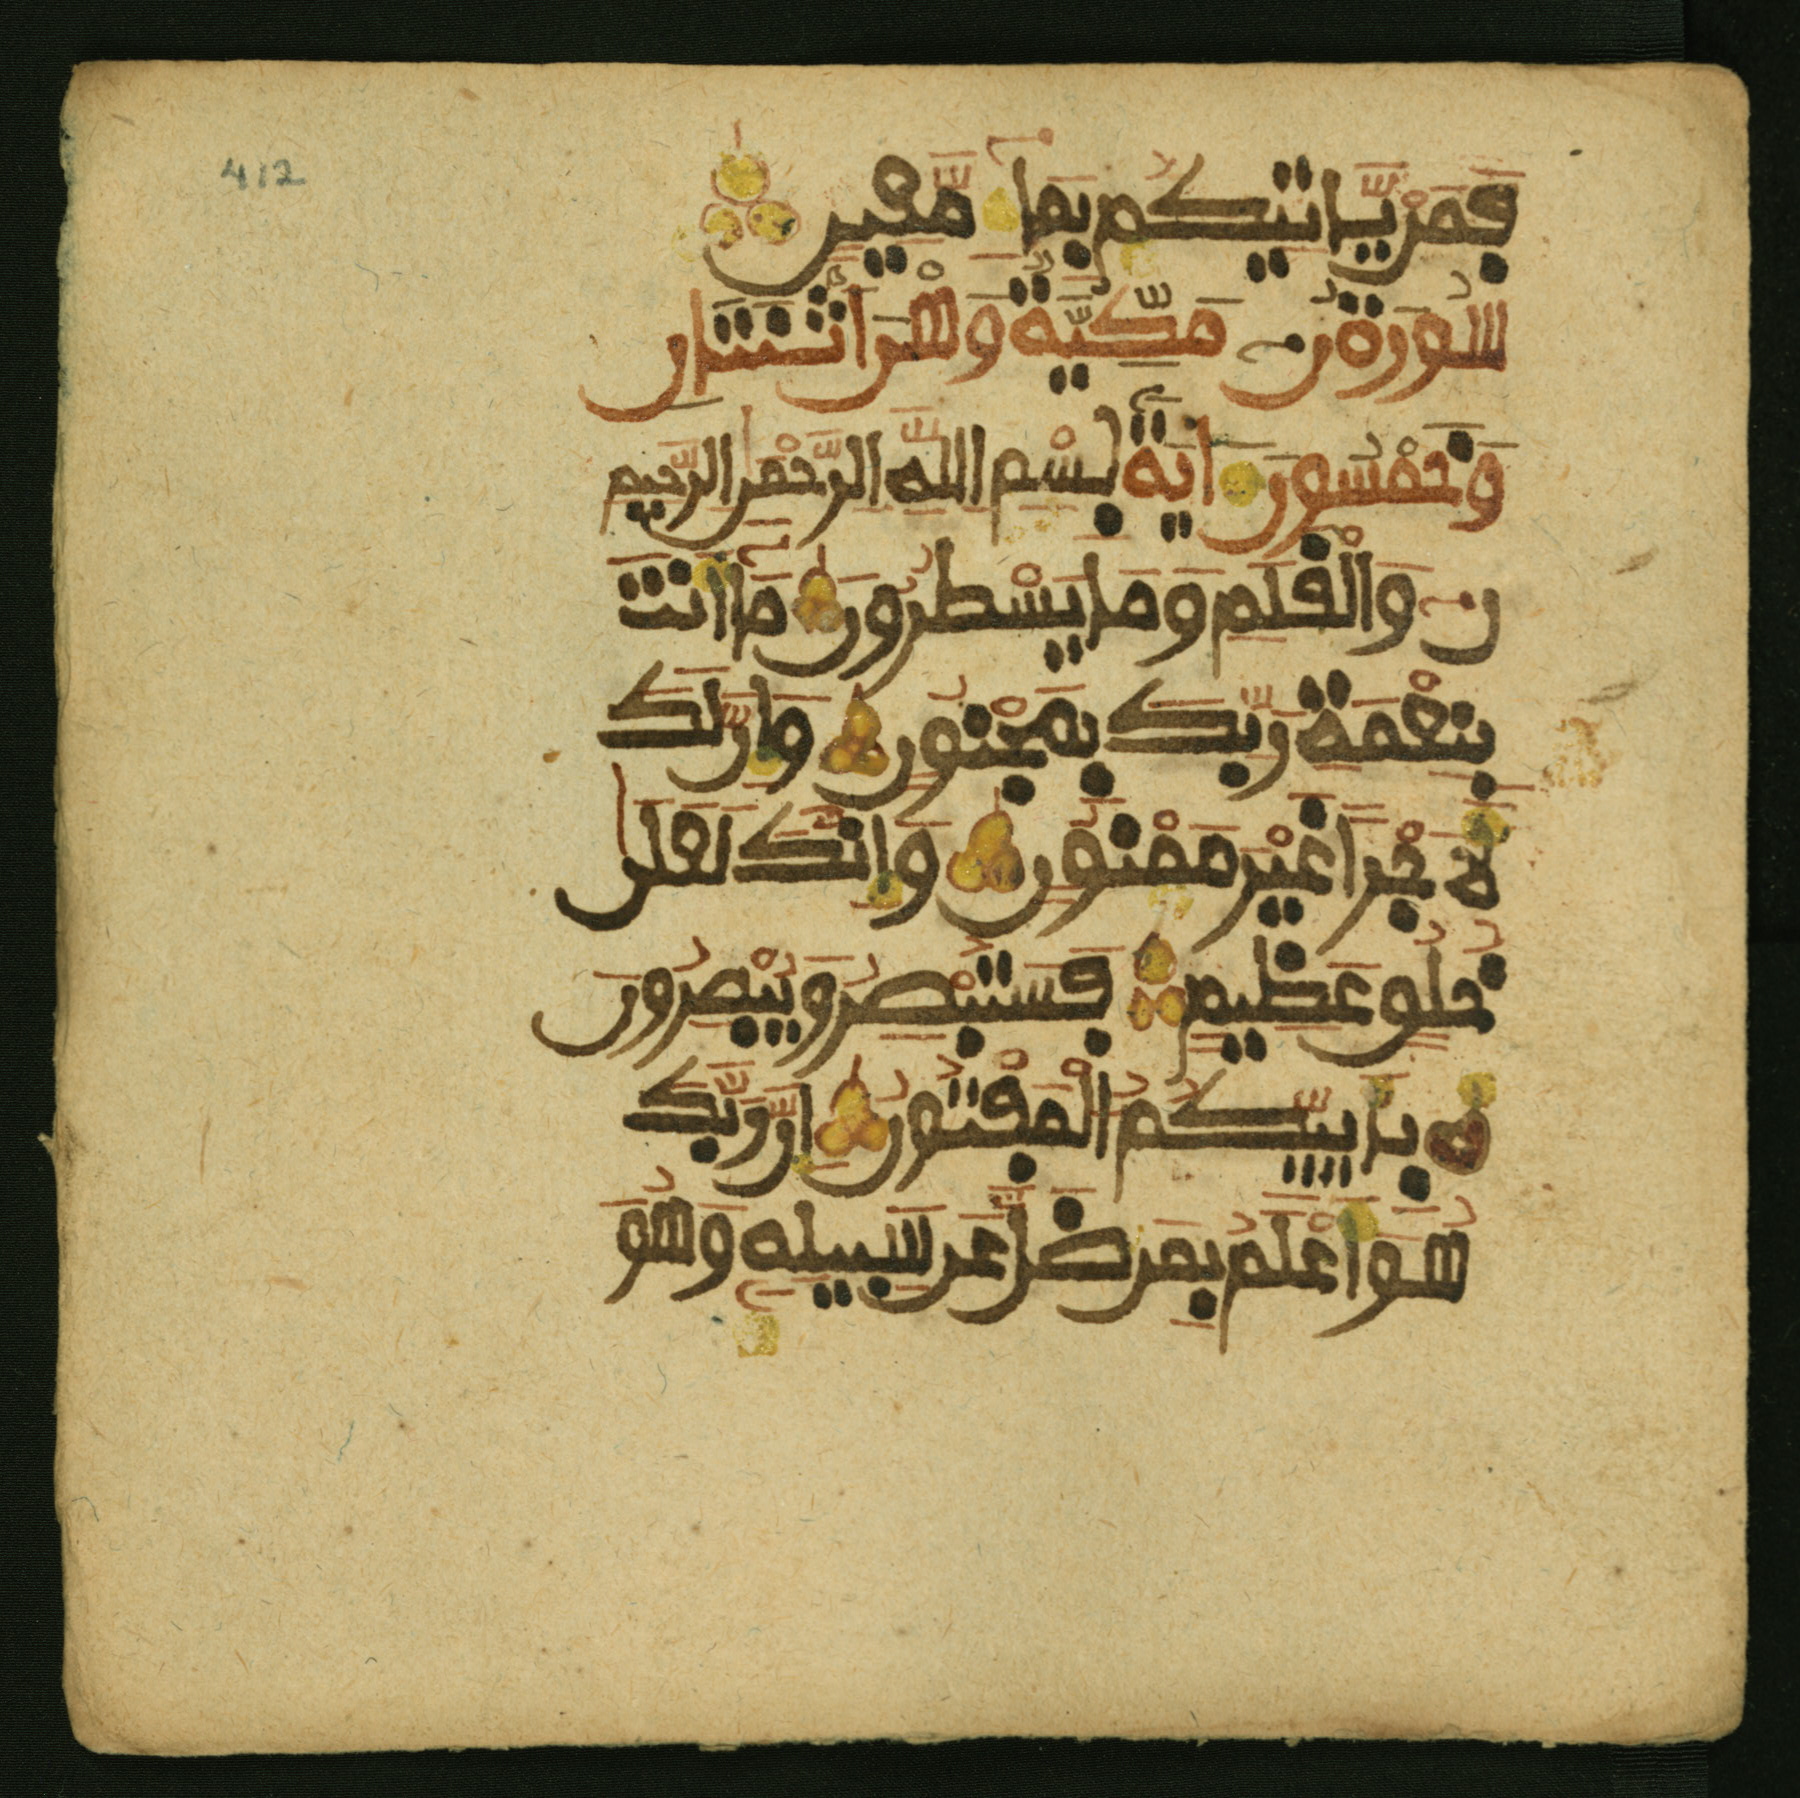 412
فَمَنْ يَّاتِيكُم بِمَآءٍ مَّعِينٍ
سُورَةُ نٓ مَكِّيَّةٌ وَهْىَ اثْنَتَانِ
وَخَمْسُونَ ايَةً بِسْمِ اللَّهِ الرَّحْمَٰنِ الرَّحِيمِ
نٓ وَالْقَلَمِ وَمَا يَسْطُرُونَ مَآ أَنتَ
بِنِعْمَةِ رَبِّكَ بِمَجْنُونٍ وَإِنَّ لَكَ
لَأَجْرًا غَيْرَ مَمْنُونٍ وَإِنَّكَ لَعَلَىٰ
خُلُقٍ عَظِيمٍ فَسَتُبْصِرُ وَيُبْصِرُونَ
بِأَييِّكُمُ الْمَفْتُونُ إِنَّ رَبَّكَ
هُوَ أَعْلَمُ بِمَن ضَلَّ عَن سَبِيلِهِ وَهُوَ